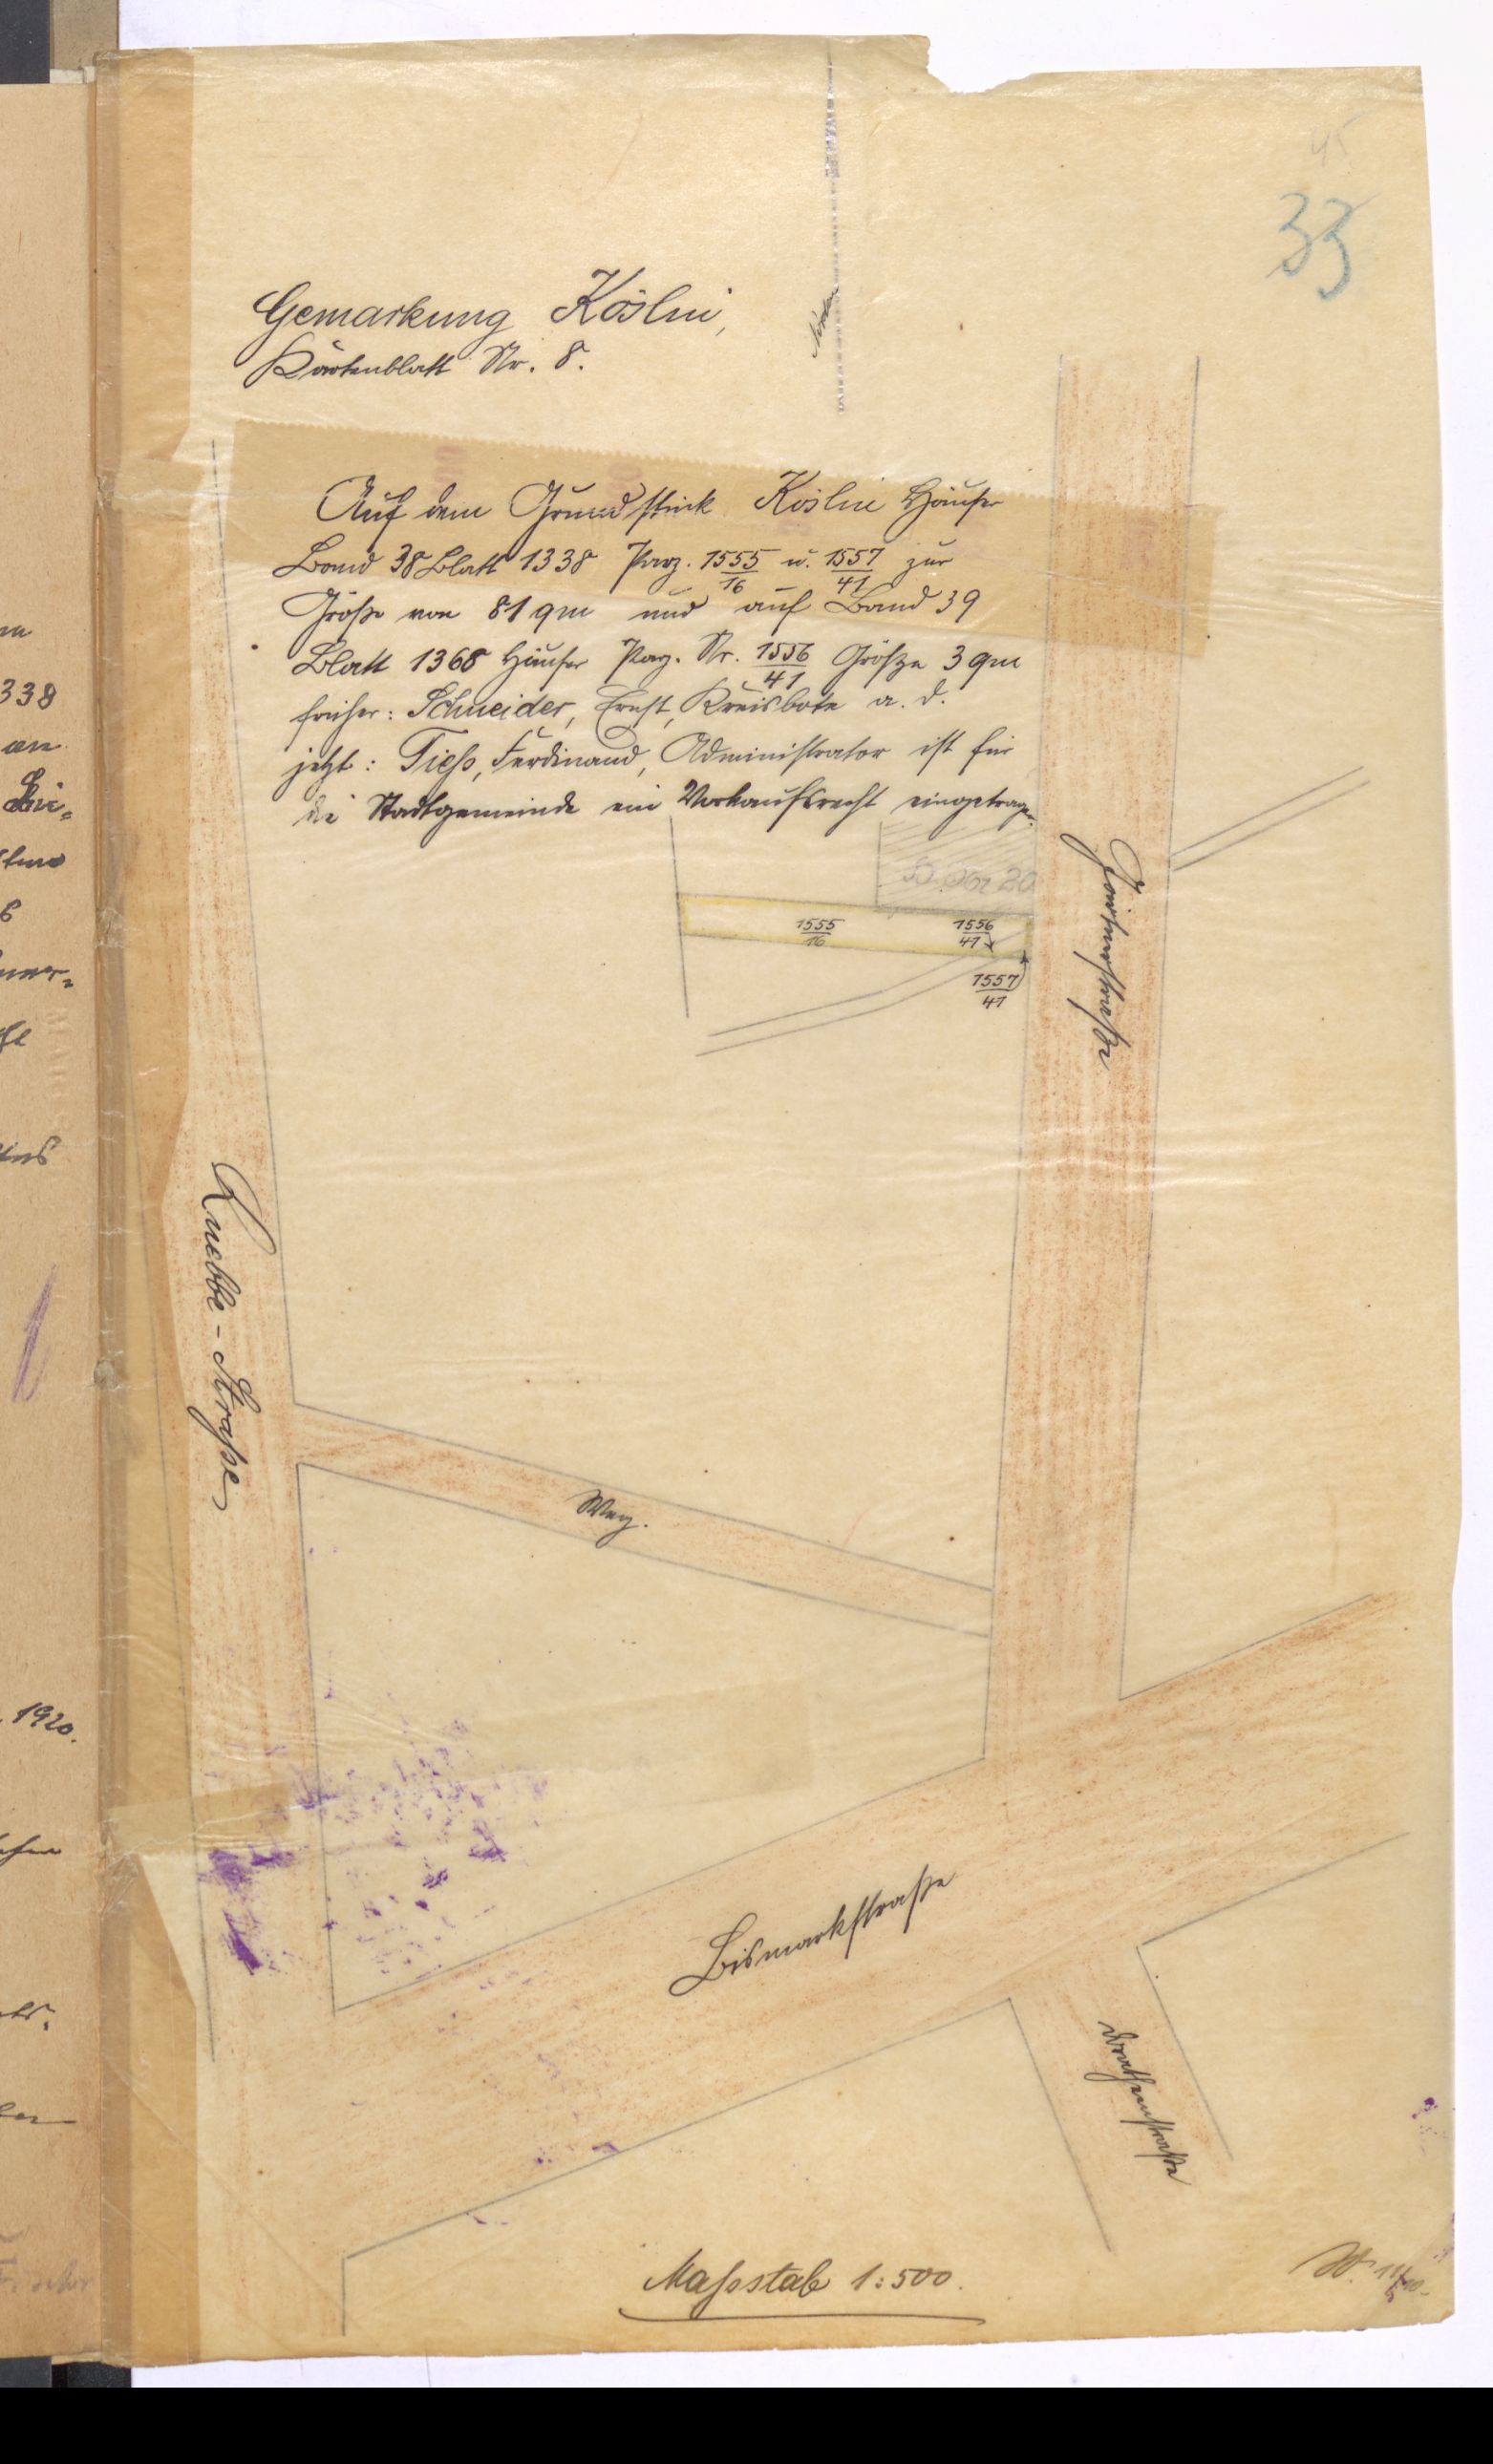 45
33
Gemarkung Köslin,
Kartenblatt Nr. 8.
Norden
Auf dem Grundstück Köslin Häuser
Band 38 Blatt 1338 Parz. 1555/16 u. 1557/41 zur
Größe von 81 qm und auf Band 39
Blatt 1368 Häuser Parz. Nr. 1556/41 Größe 3 qm
früher: Schneider, Ernst, Kreisbote a. D.
jetzt: Tieß, Ferdinand, Administrator ist für
die Stadtgemeinde ein Vorkaufsrecht eingetragen.
1555/16
1556/41
1557/41
Knebbe-Straße
Weg.
Bismarkstraße
Maßstab 1:500.
338
1920.